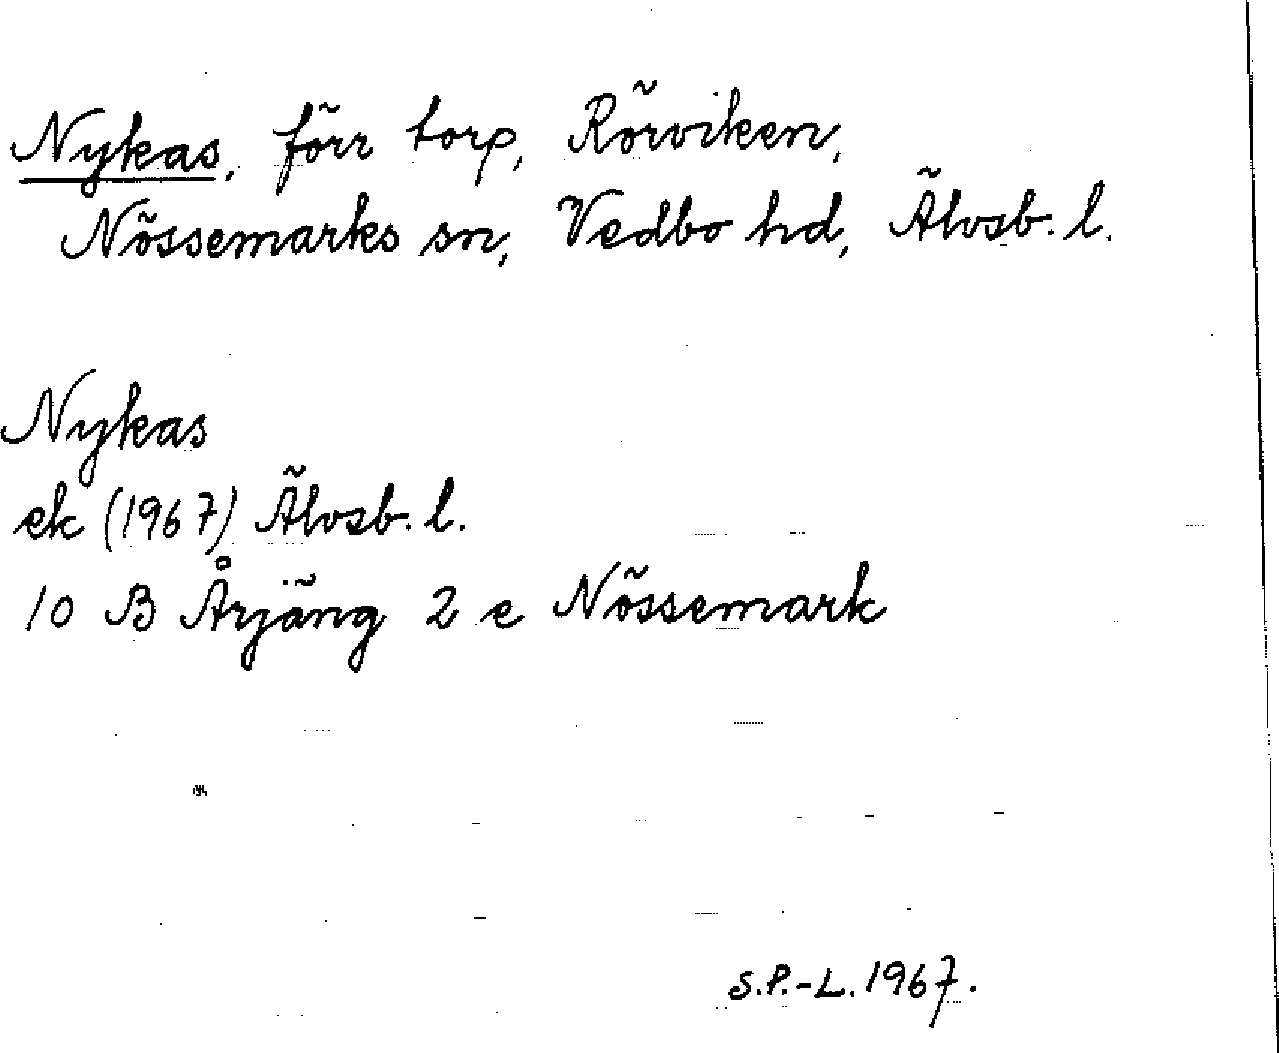 Nykas, förr torp, Rörviken,
Nössemarks sn, Vedbo hd, Älvsb. l.
Nykas
ek (1967) Älvsb. l.
10 B Årjäng 2 e Nössemark
S.P.-L. 1967.